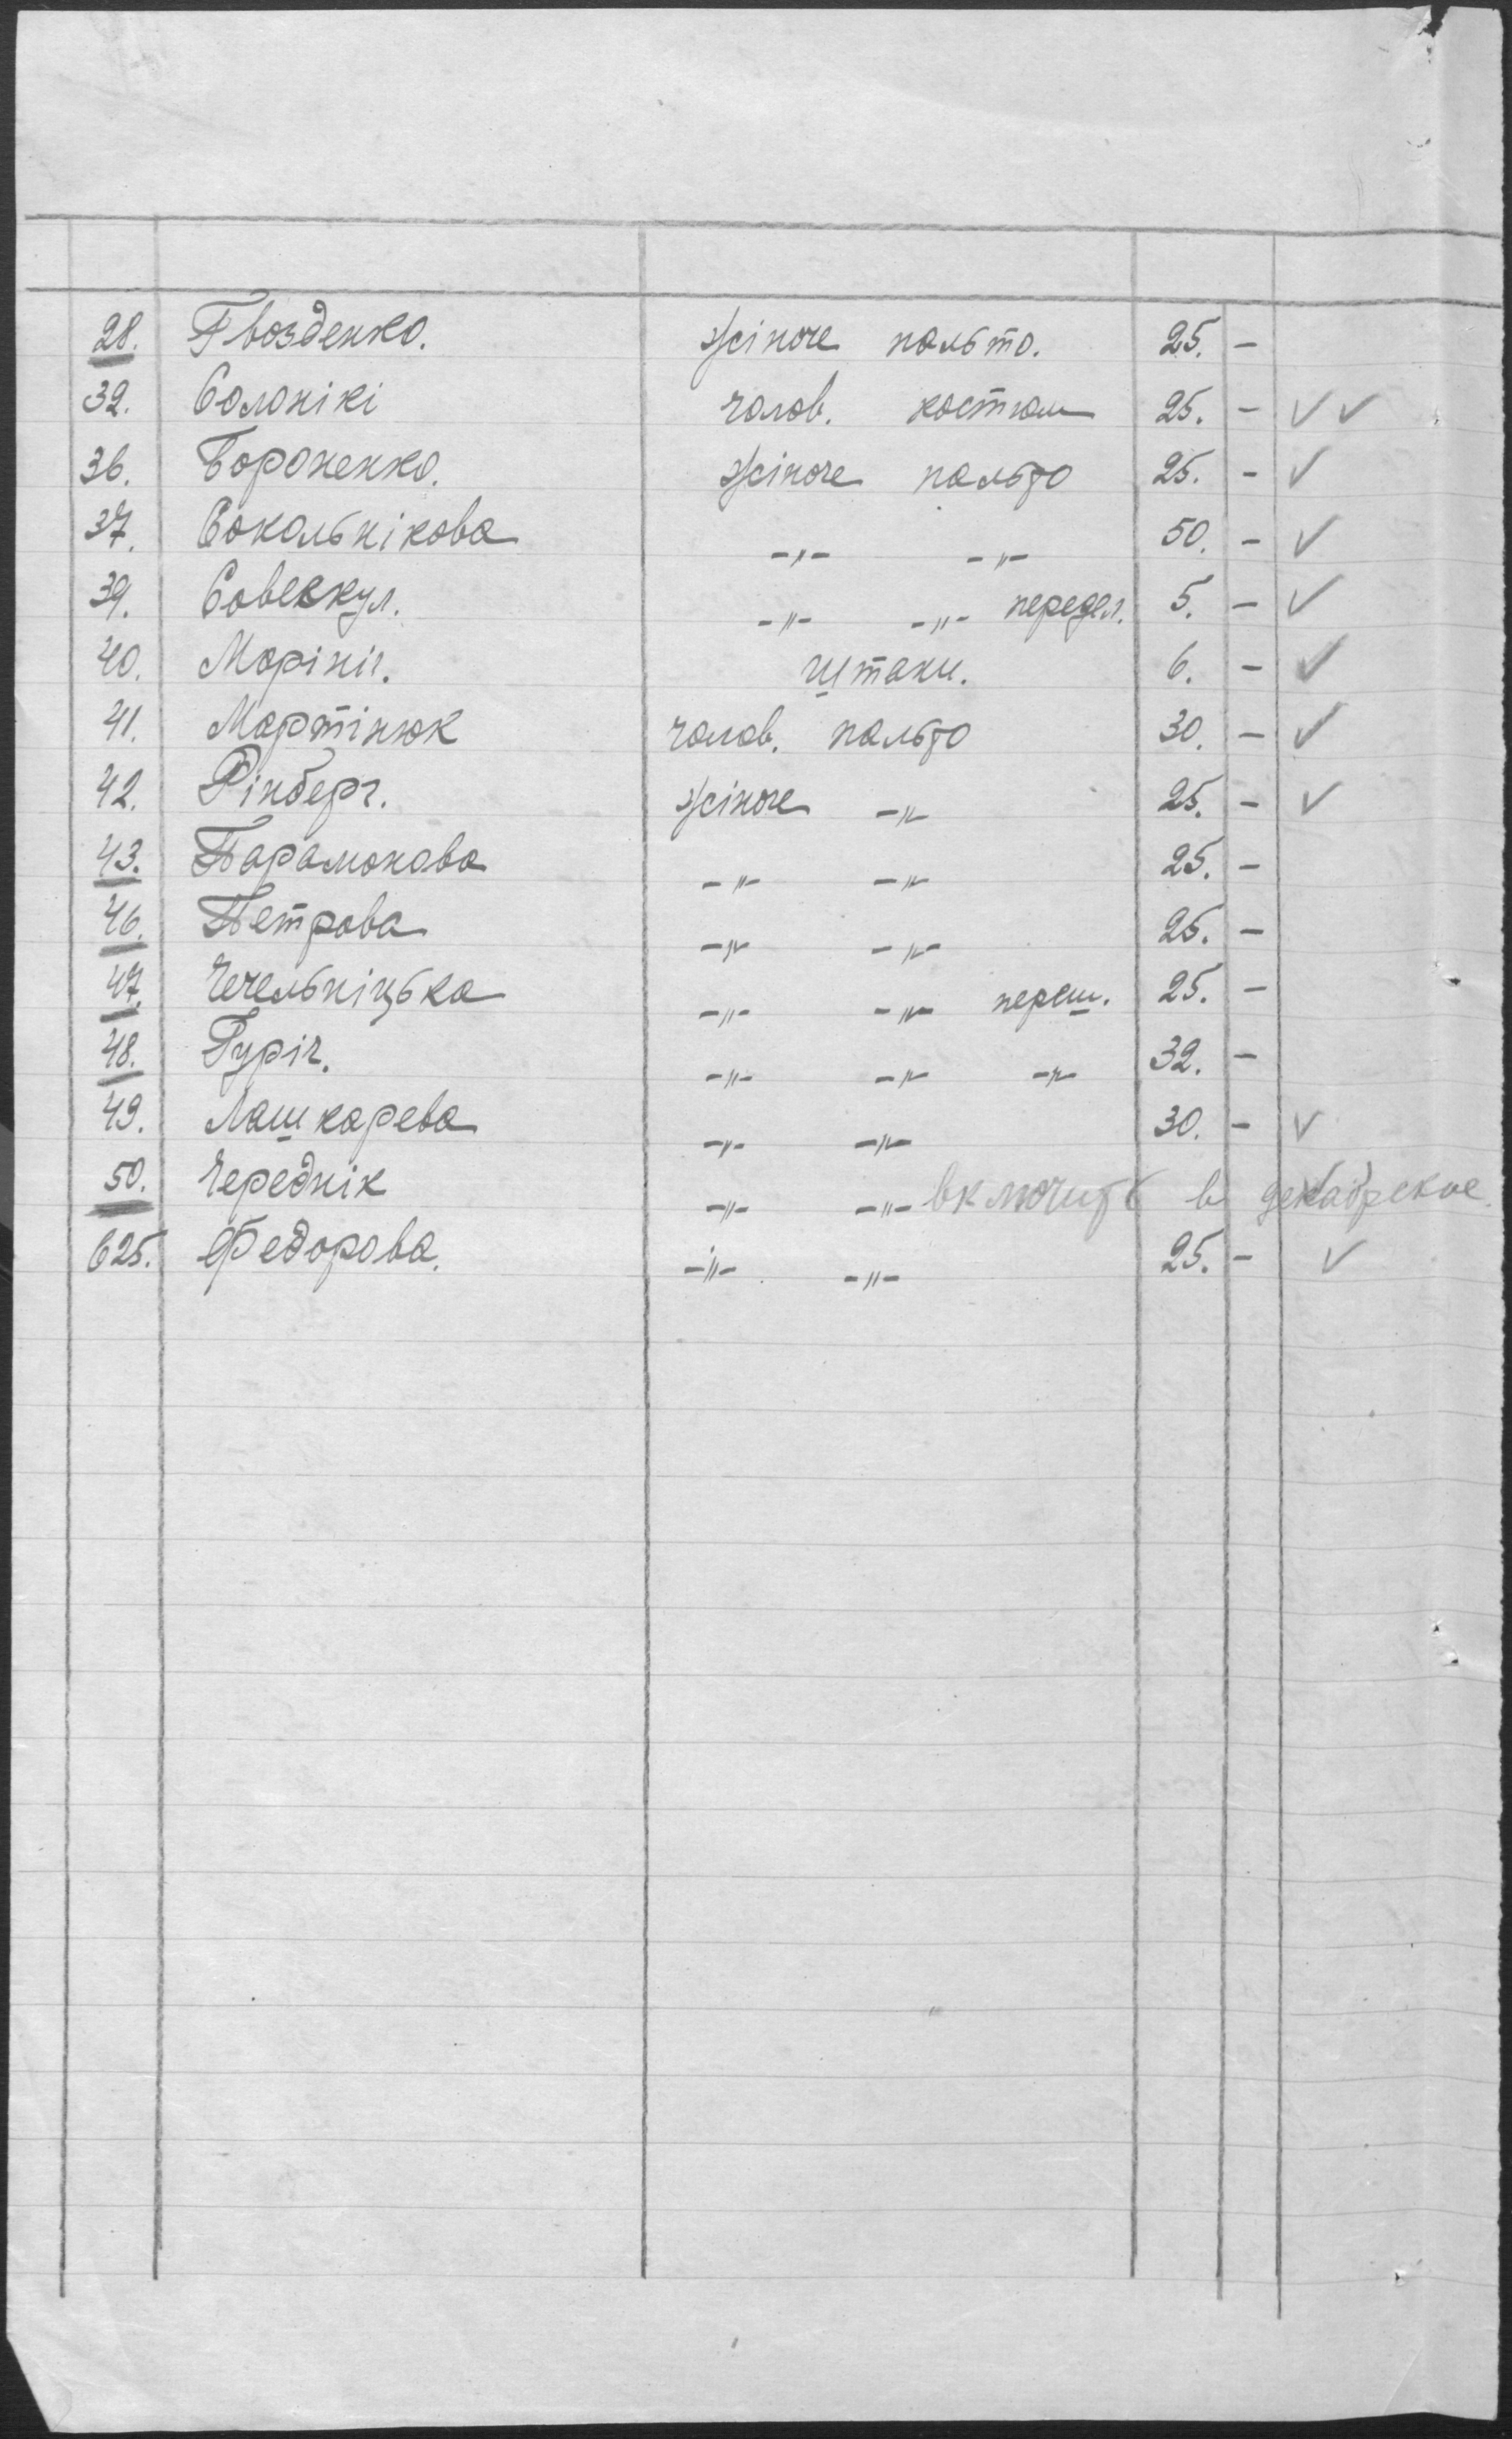 28. Гвозденко. жіноче пальто. 25. -
32. Солонікі чолов. костюм 25. - ✓ ✓
36. Бороненко. жіноче пальто 25. - ✓
37. Сокольнікова -"- -"- 50. - ✓
39. -"- -"- передел. 5. - ✓
40. Морініг. штани. 6. - ✓
41. Мартінюк чолов. пальто 30. - ✓
42. Рінберг. жіноче -"- 25. - ✓
43. Парамонова -"- -"- 25. -
46. Петрова -"- -"- 25. -
47. Чечельніцька -"- -"- переш. 25. -
48. Гуріч. -"- -"- -"- 32. -
49. Лашкарева -"- -"- 30. - ✓
50. Череднік -"- -"- включить в декабрские
625. Федорова. -"- -"- 25. - ✓